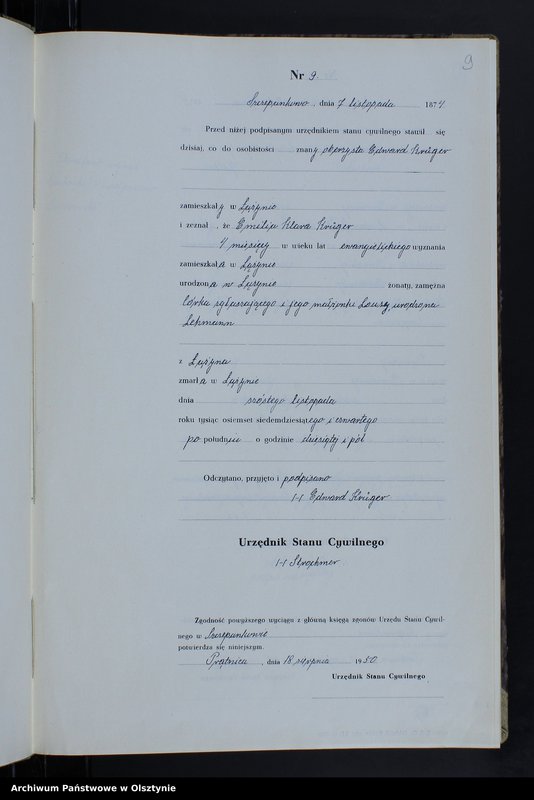 9
Nr 9.
Szczepankowo, dnia 7 listopada 1874
Przed niżej podpisanym urzędnikiem stanu cywilnego stawił się
dzisiaj, co do osobistości znany Edward Krüger
zamieszkały w Łążynie
i zeznał, że Emilja Klara Krüger
4 miesięcy w wieku lat ewangielickiego wyznania
zamieszkała w Łążynie
urodzona w Łążynie zonaty, zamężna
córka zgłaszającego i jego małżonki Louizy, urodzona
Lehmann
z Łążyna
zmarła w Łążynie
dnia szóstego listopada
roku tysiąc osiemset siedemdziesiątego i czwartego
po południu o godzinie dziesiątej i pół
Odczytano, przyjęto i podpisano
/-/ Edward Krüger
Urzędnik Stanu Cywilnego
/-/
Zgodność powyższego wyciągu z główną księgą zgonów Urzędu Stanu Cywil-
nego w Szczepankowie
potwierdza się niniejszym.
Prątnica, dnia 18 sierpnia 1950
Urzędnik Stanu Cywilnego
Archiwum Państwowe w Olsztynie